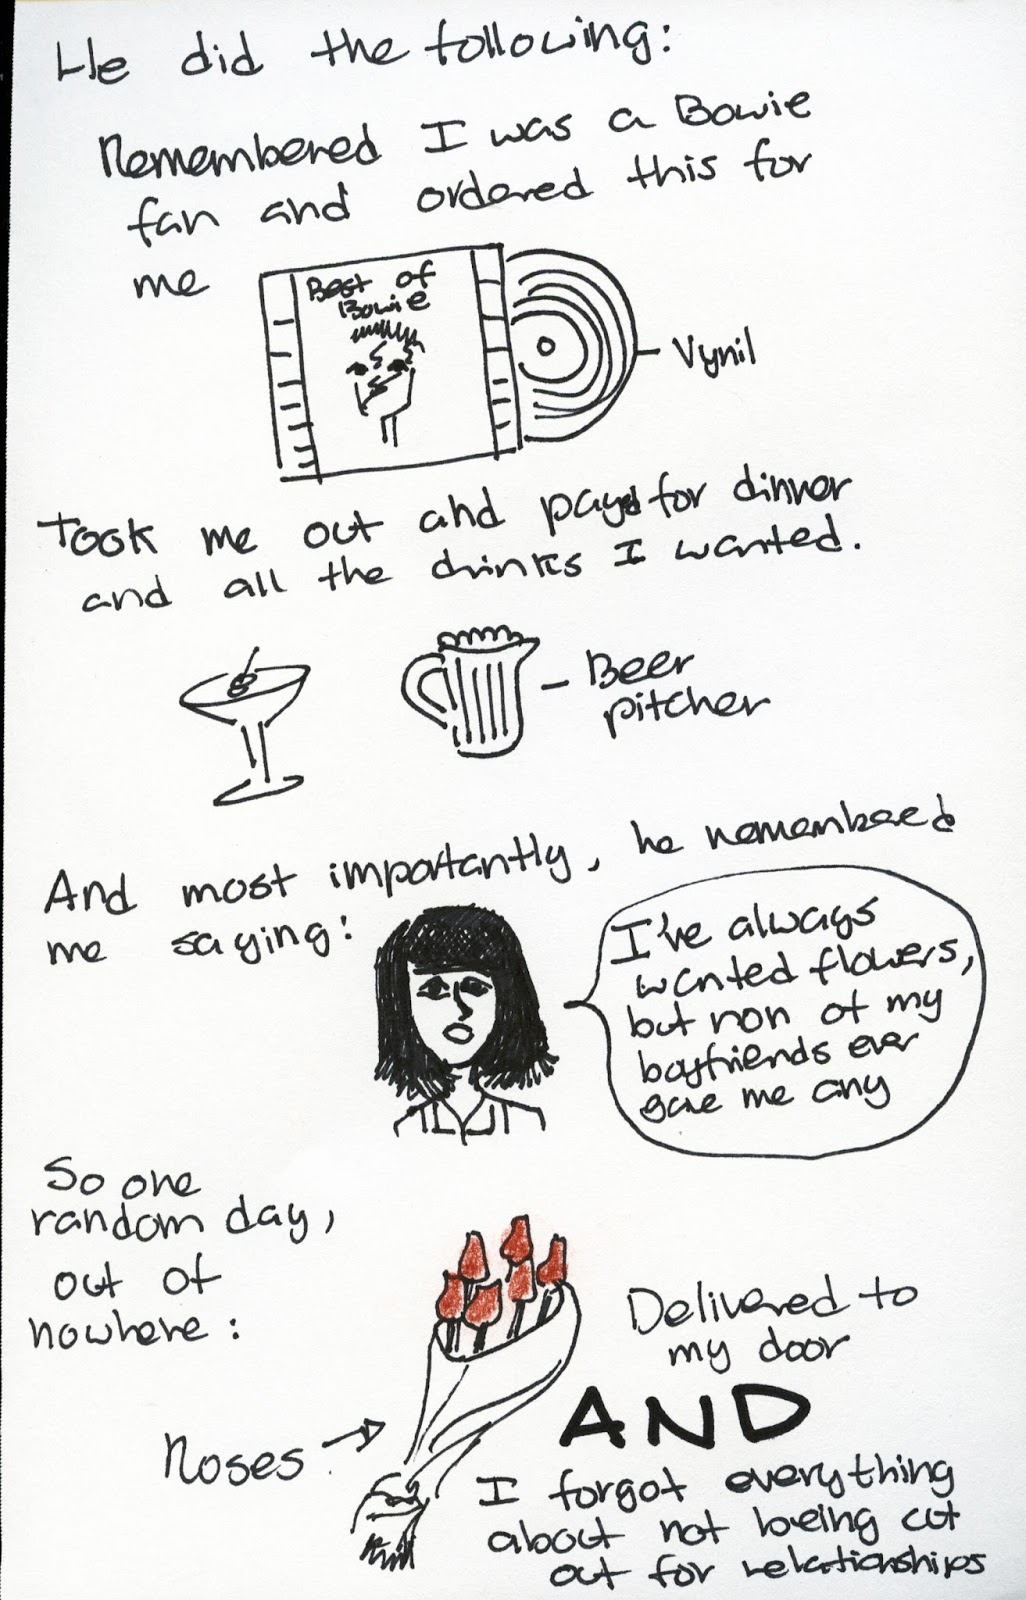 He did the following:
Remembered I was a Bowie
fan and ordered this for
me
Best of
Bowie
Vynil
Took me out and payd for dinner
and all the drinks I wanted.
Beer
pitcher
And most importantly, he remembeed
me saying:
I've always
wanted flowers,
but non of my
boyfriends ever
gave me any
So one
random day,
out of
nowhere:
Delivered to
my door
AND
Roses
I forgot everything
about not being cut
out for relationships